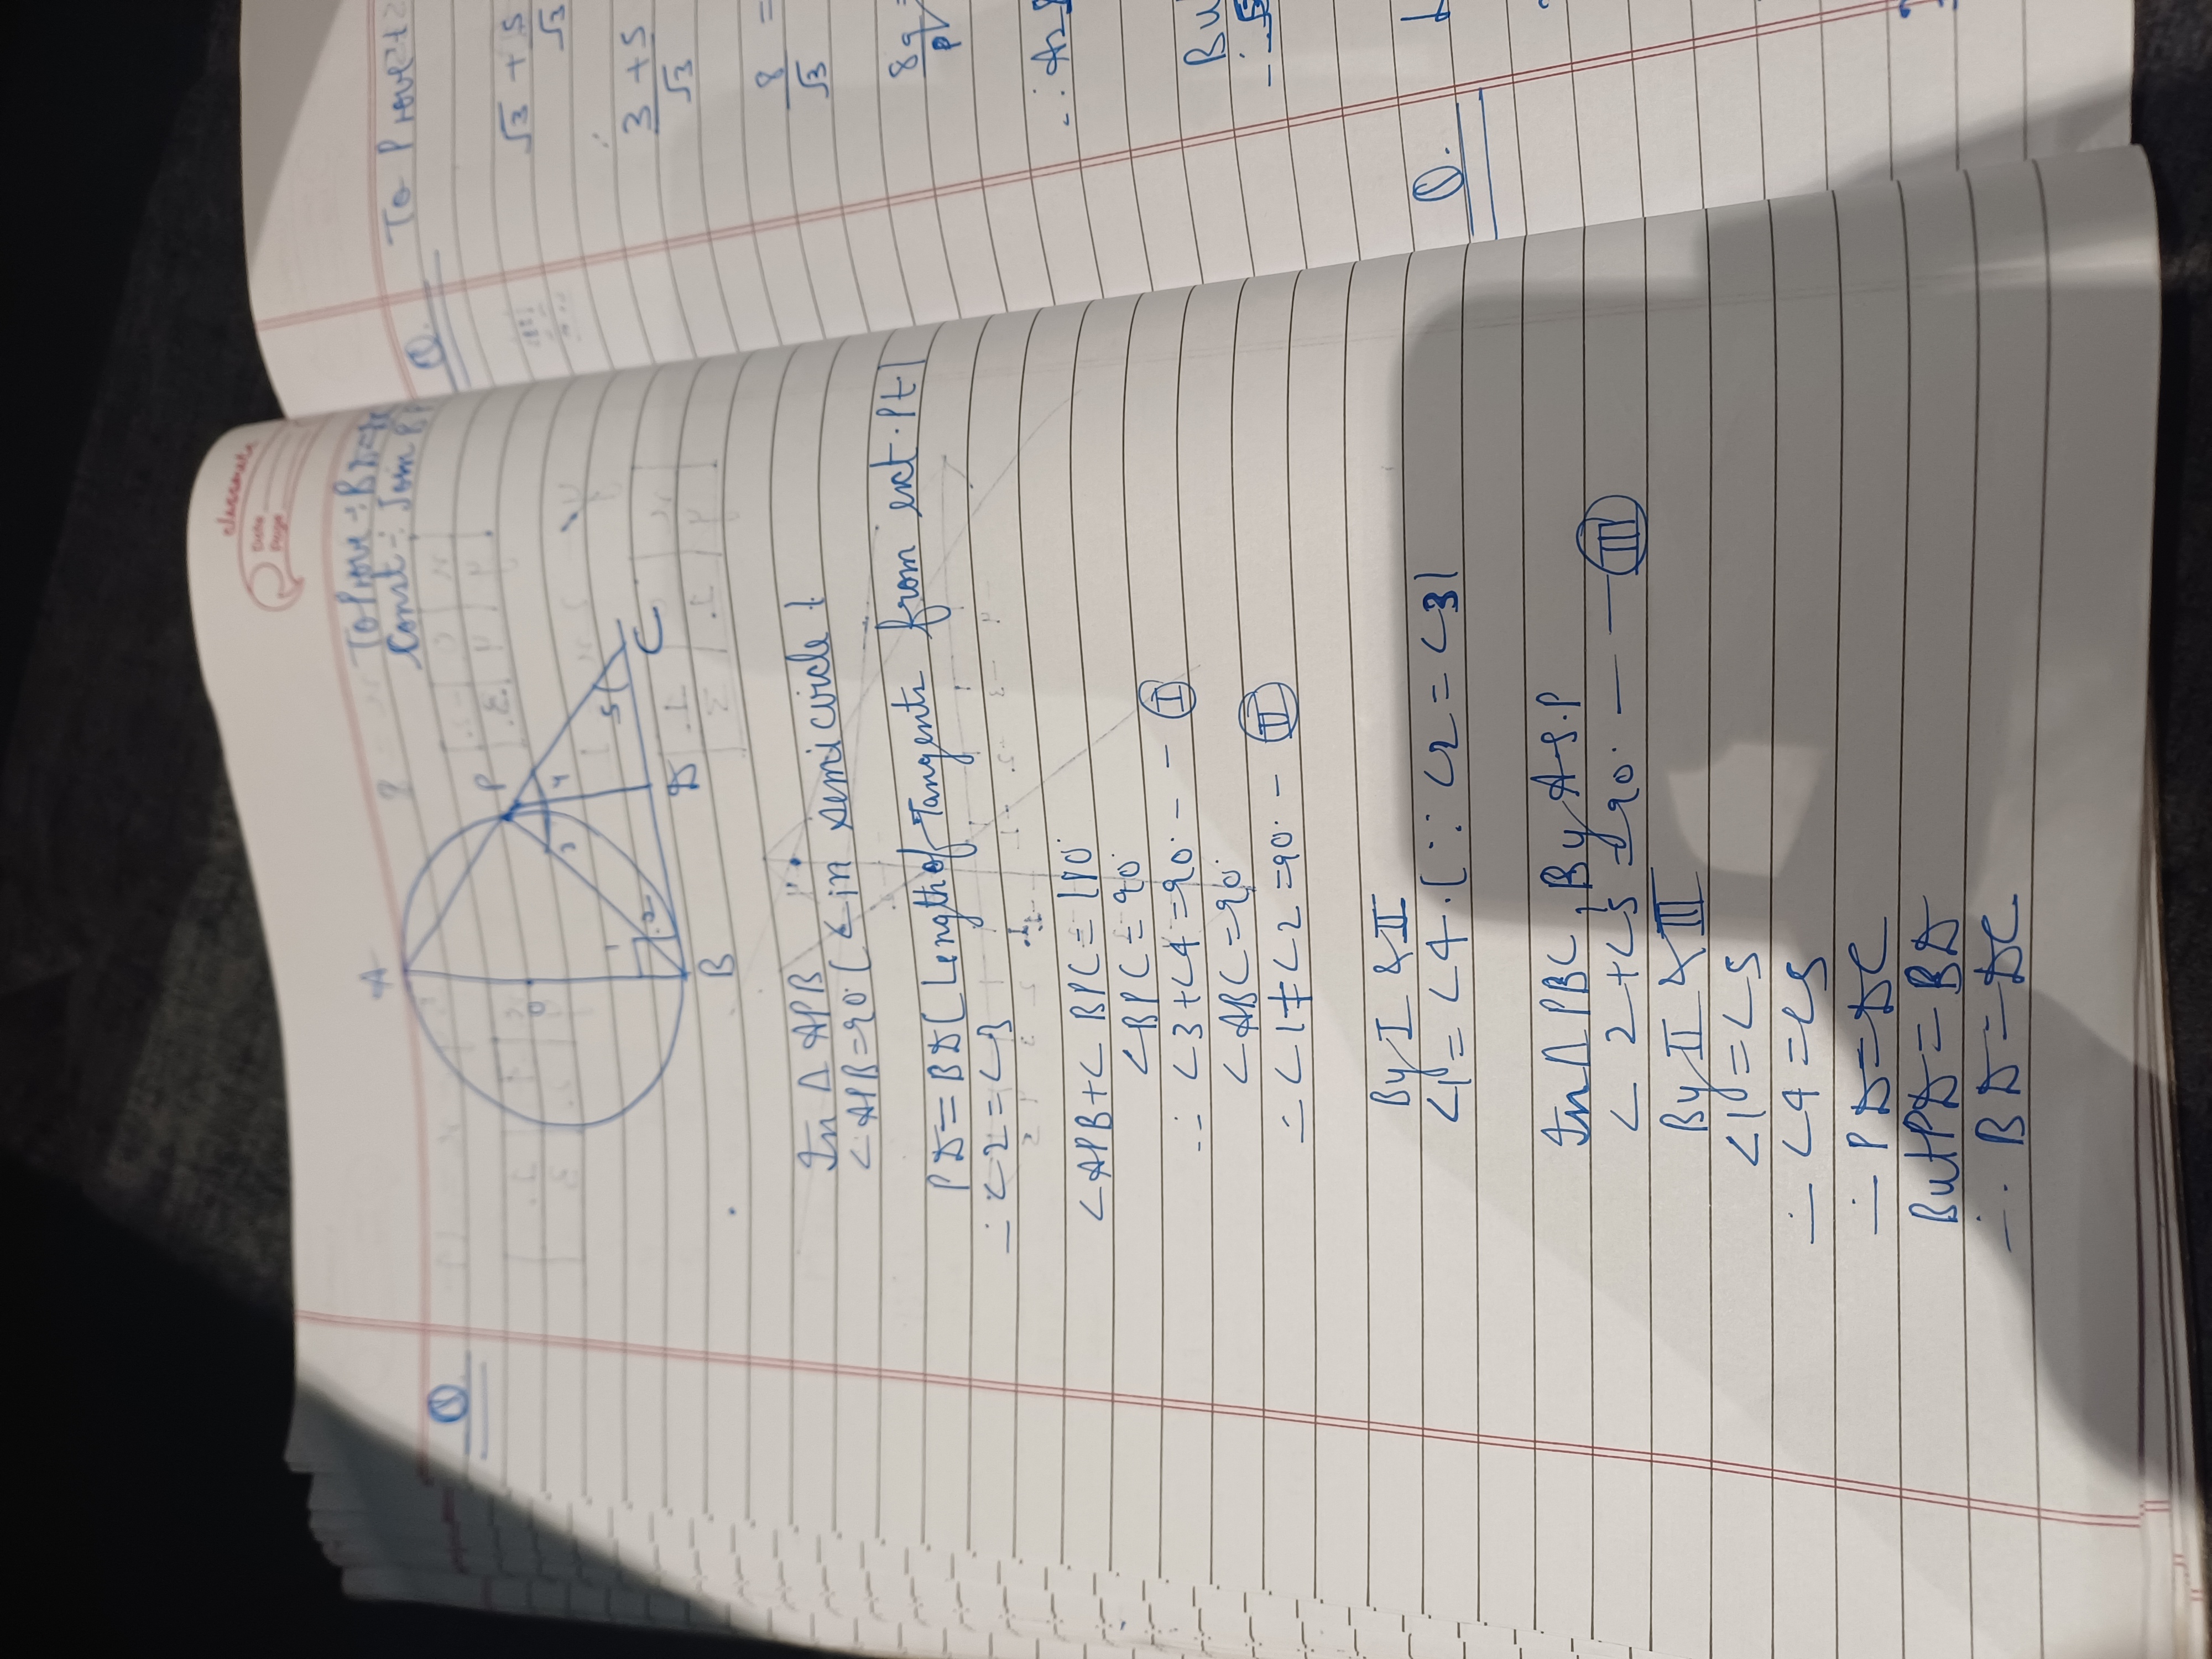 classmate
Date
Page
Q.
To Prove :- BD = DC
Const :- Join BP
A
P
O
3
4
5
1
2
C
D
B
In Δ APB
∠APB = 90° (∠ in semi circle)
PD = BD (Length of Tangents from ext. Pt)
∴ ∠2 = ∠3
∠APB + ∠BPC = 180°
∠BPC = 90°
∴ ∠3 + ∠4 = 90° - - I
∠ABC = 90°
∴ ∠1 + ∠2 = 90° - II
By I & II
∠1 = ∠4 . (∵ ∠2 = ∠3)
In Δ PBC, By A.S.P
∠2 + ∠5 = 90° - - III
By II & III
∠1 = ∠5
∴ ∠4 = ∠5
∴ PD = DC
But PD = BD
∴ BD = DC
Q.
To Prove
√3 + 5/√3
3 + 5/√3
8/√3 =
8q/p
∴ As
Bu
∴ √3
Q.